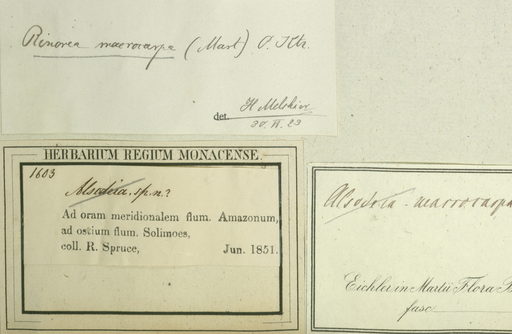 Rinorea macrocarpa (Mart) O. Ktz.
det. H Melchior
20. VI. 23
HERBARIUM REGIUM MONACENSE.
1603
Alsodeia. sp. n.?
Ad oram meridionalem flum. Amazonum,
ad ostium flum. Solimoes,
coll. R. Spruce, Jun. 1851.
Alsodeia macrocarpa
Eichler in Martii Flora B
fasc